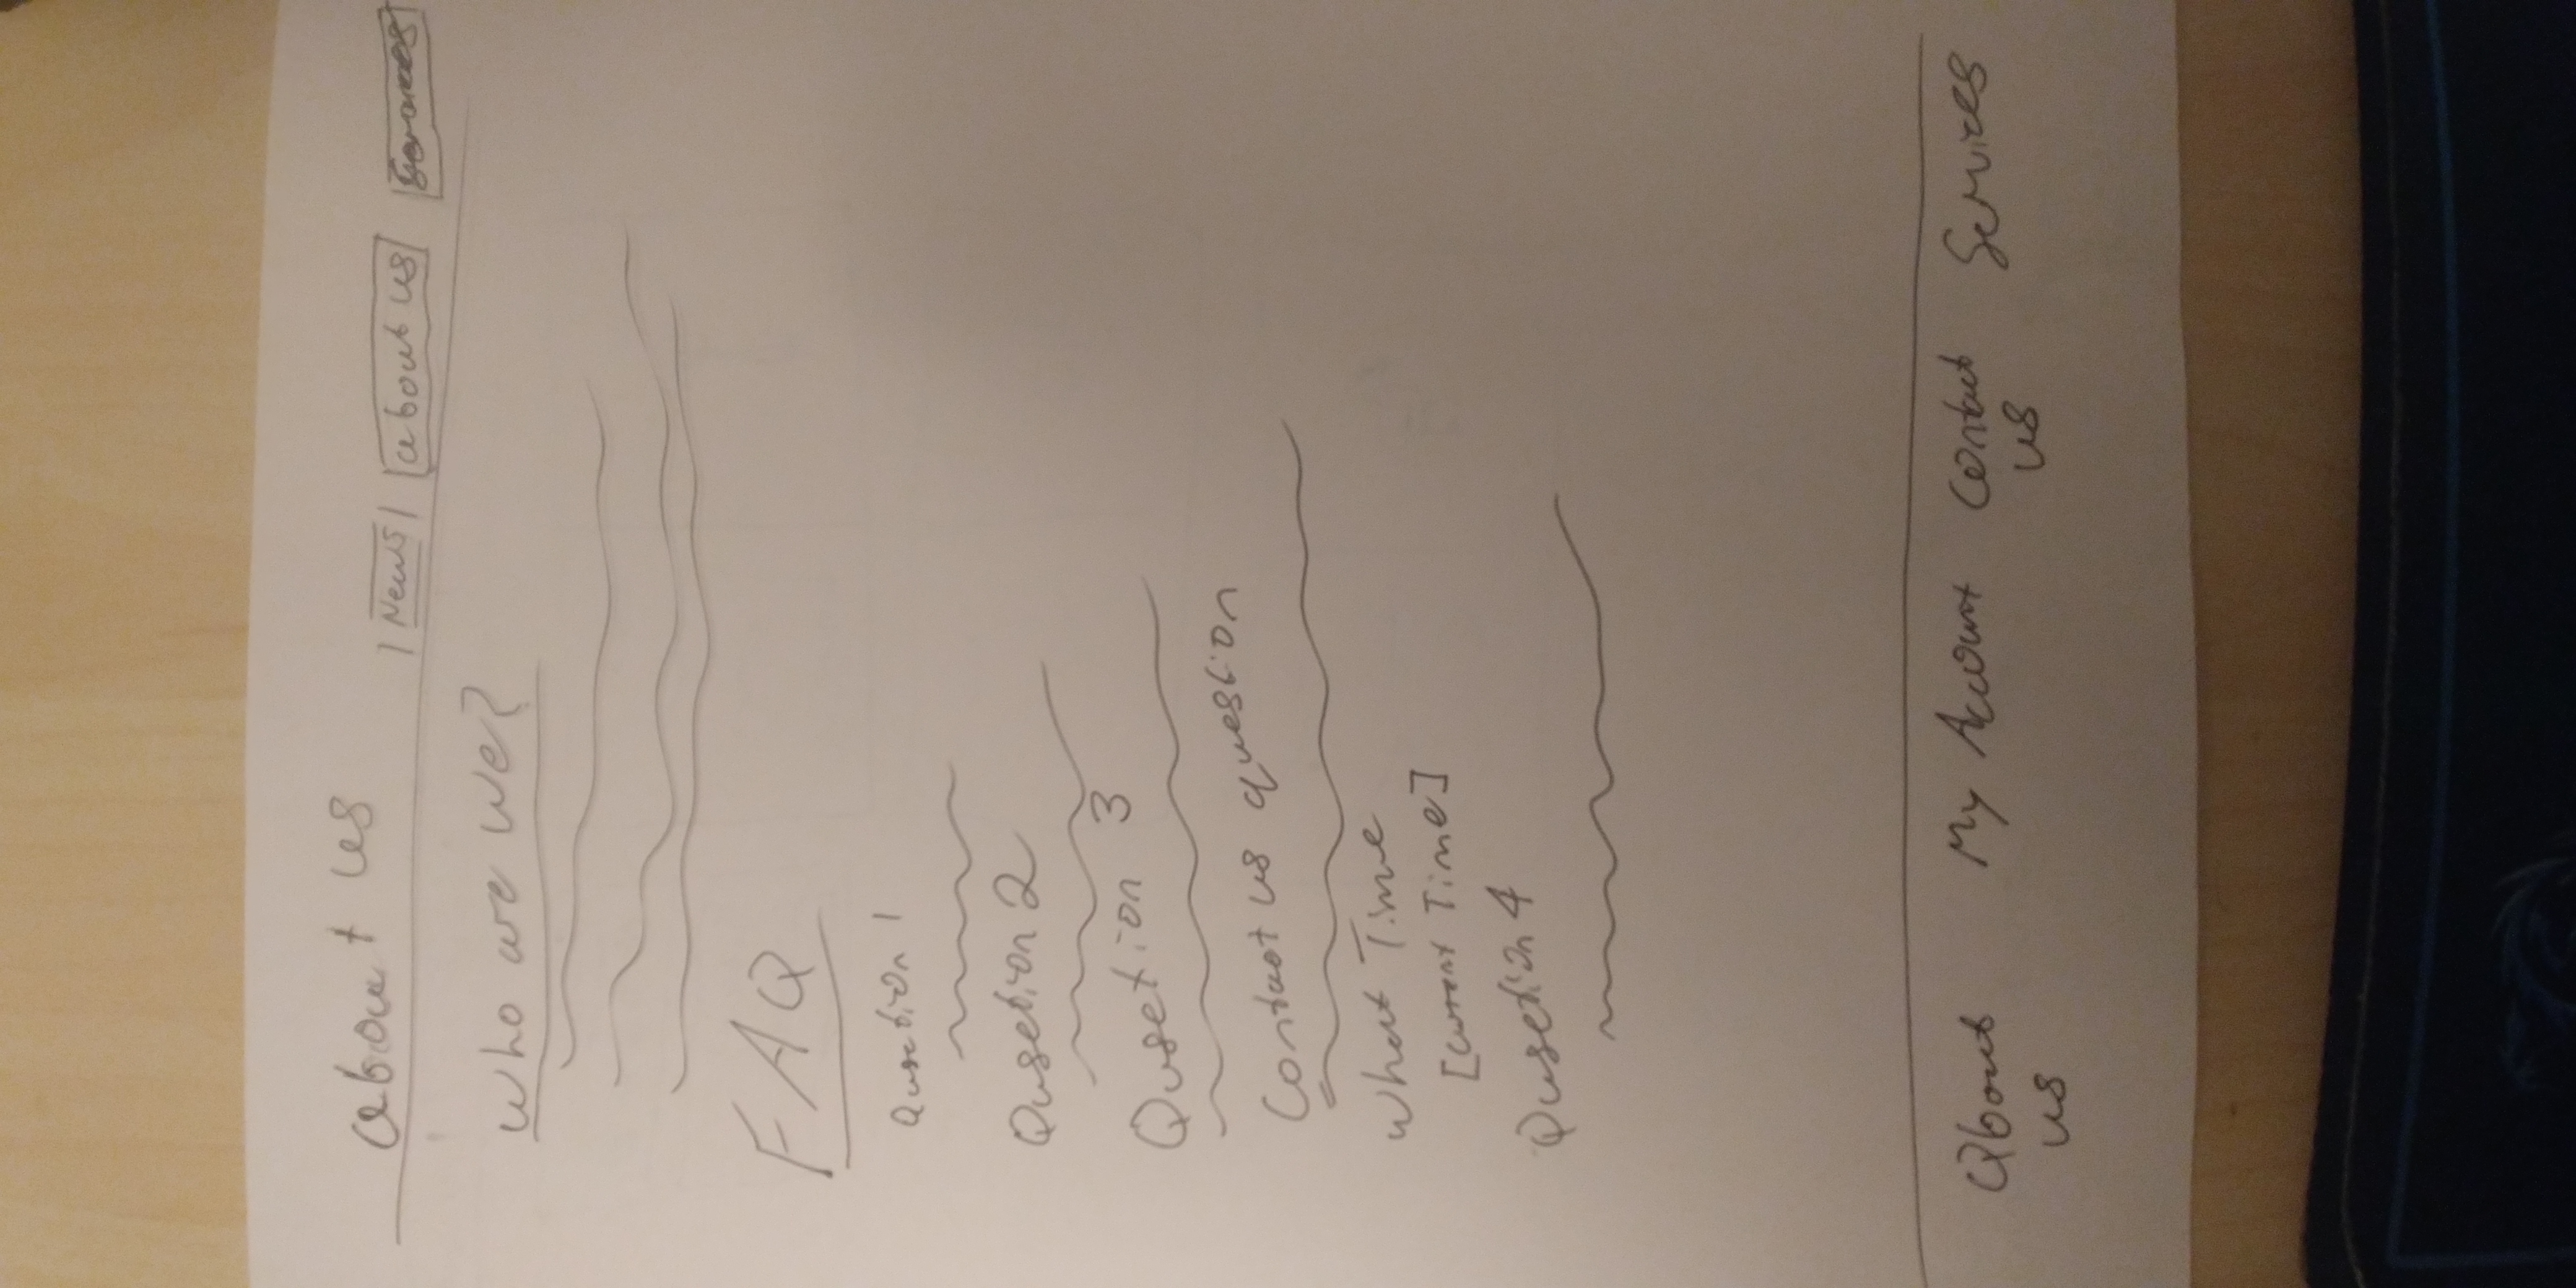 about us
News about us Services
Who are We?
FAQ
Qusetion 1
Qusetion 2
Qusetion 3
Contact us question
What Time
[Current Time]
Qusetion 4
About My Account Contact Services
us us